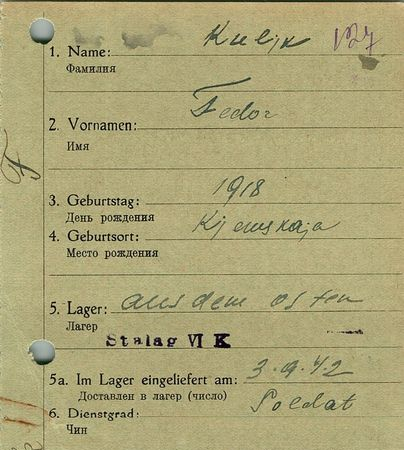 1. Name: Kulik 127
Фамилия
Fedor
2. Vornamen:
Имя
1918
3. Geburtstag:
День рождения
Kijewskaja
4. Geburtsort:
Место рождения
5. Lager: aus dem osten
Лагер
Stalag VI K
5a. Im Lager eingeliefert am: 3.9.42
Доставлен в лагер (число)
6. Dienstgrad: Soldat
Чин